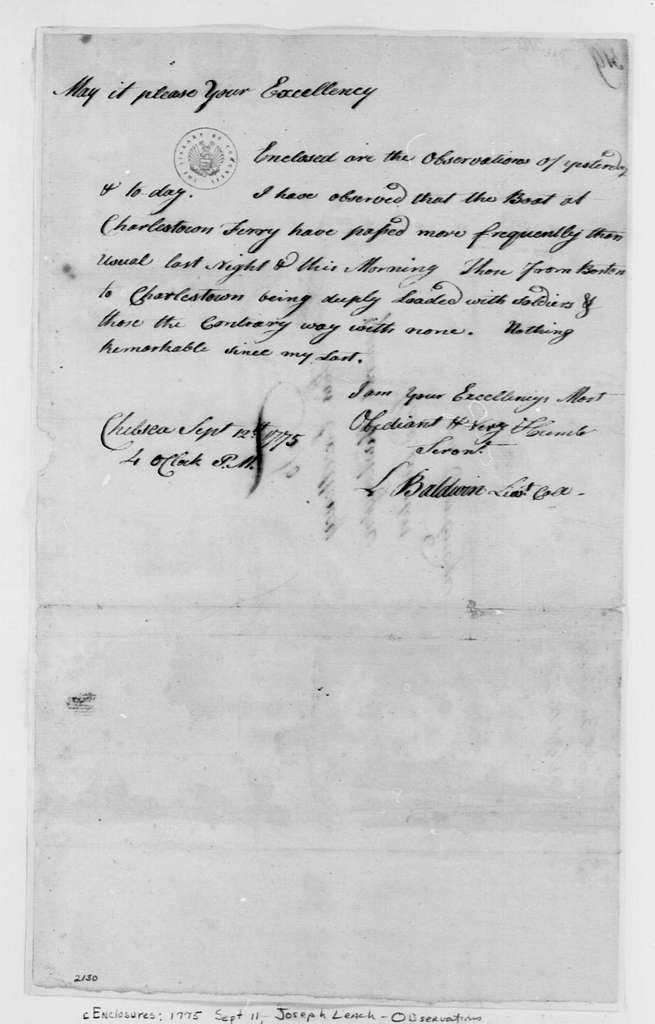 May it please Your Excellency
THE LIBRARY OF CONGRESS
Enclosed are the Observations of yesterday
& to day. I have observed that the Boat at
Charlestown Ferry have passed more frequently than
usual last Night & this Morning Those From Boston
to Charlestown being deeply Loaded with Soldiers &
those the Contrary way with none. Nothing
Remarkable since my Last.
I am Your Excellencys Most
Obediant & very Humb
Servn.t
Chelsea Sept 12th 1775
4 oClock P.M.
L Baldwin Lieut Col
2130
c Enclosures: 1775 Sept 11, Joseph Leach - Observations